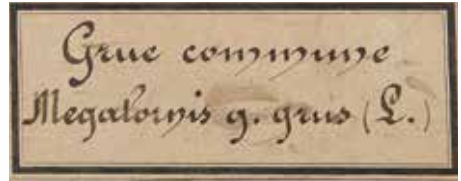 Grue commune
Megalornis g. grus (L.)